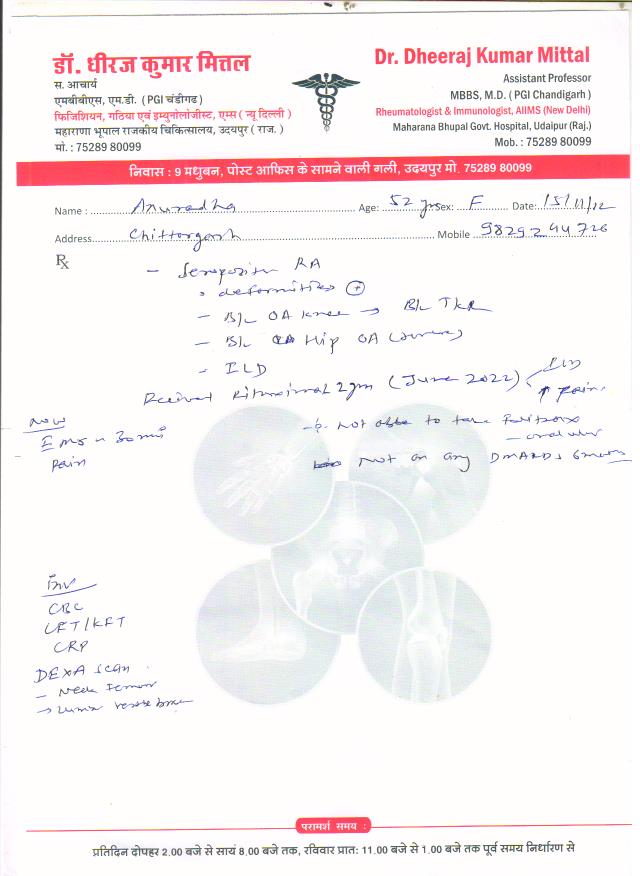 डॉ. धीरज कुमार मित्तल
स. आचार्य
एमबीबीएस, एम.डी. (PGI चंडीगढ)
फिजिशियन, गठिया एवं इम्युनोलोजीस्ट, एम्स ( न्यू दिल्ली )
महाराणा भूपाल राजकीय चिकित्सालय, उदयपुर ( राज. )
मो. : 75289 80099
Dr. Dheeraj Kumar Mittal
Assistant Professor
MBBS, M.D. ( PGI Chandigarh )
Rheumatologist & Immunologist, AIIMS (New Delhi)
Maharana Bhupal Govt. Hospital, Udaipur (Raj.)
Mob. : 75289 80099
निवास : 9 मधुबन, पोस्ट आफिस के सामने वाली गली, उदयपुर मो. 75289 80099
Name : Anuradha Age: 52 yrs Sex: F Date: 15/11/22
Address Chittorgarh Mobile 9829244726
Rx
- Seropositive RA
deformities +
- B/L OA knee → B/L TKR
- B/L Hip OA
- ILD
Received Rituximab 2gm (June 2022) ↑ Pain
Now
EMS - 30 min
Pain
- not able to take
- oral ulcer
Not on any DMARDs 6
Inv
CBC
LFT/KFT
CRP
DEXA Scan
- Neck Femur
→
परामर्श समय :
प्रतिदिन दोपहर 2.00 बजे से सायं 8.00 बजे तक, रविवार प्रात: 11.00 बजे से 1.00 बजे तक पूर्व समय निर्धारण से